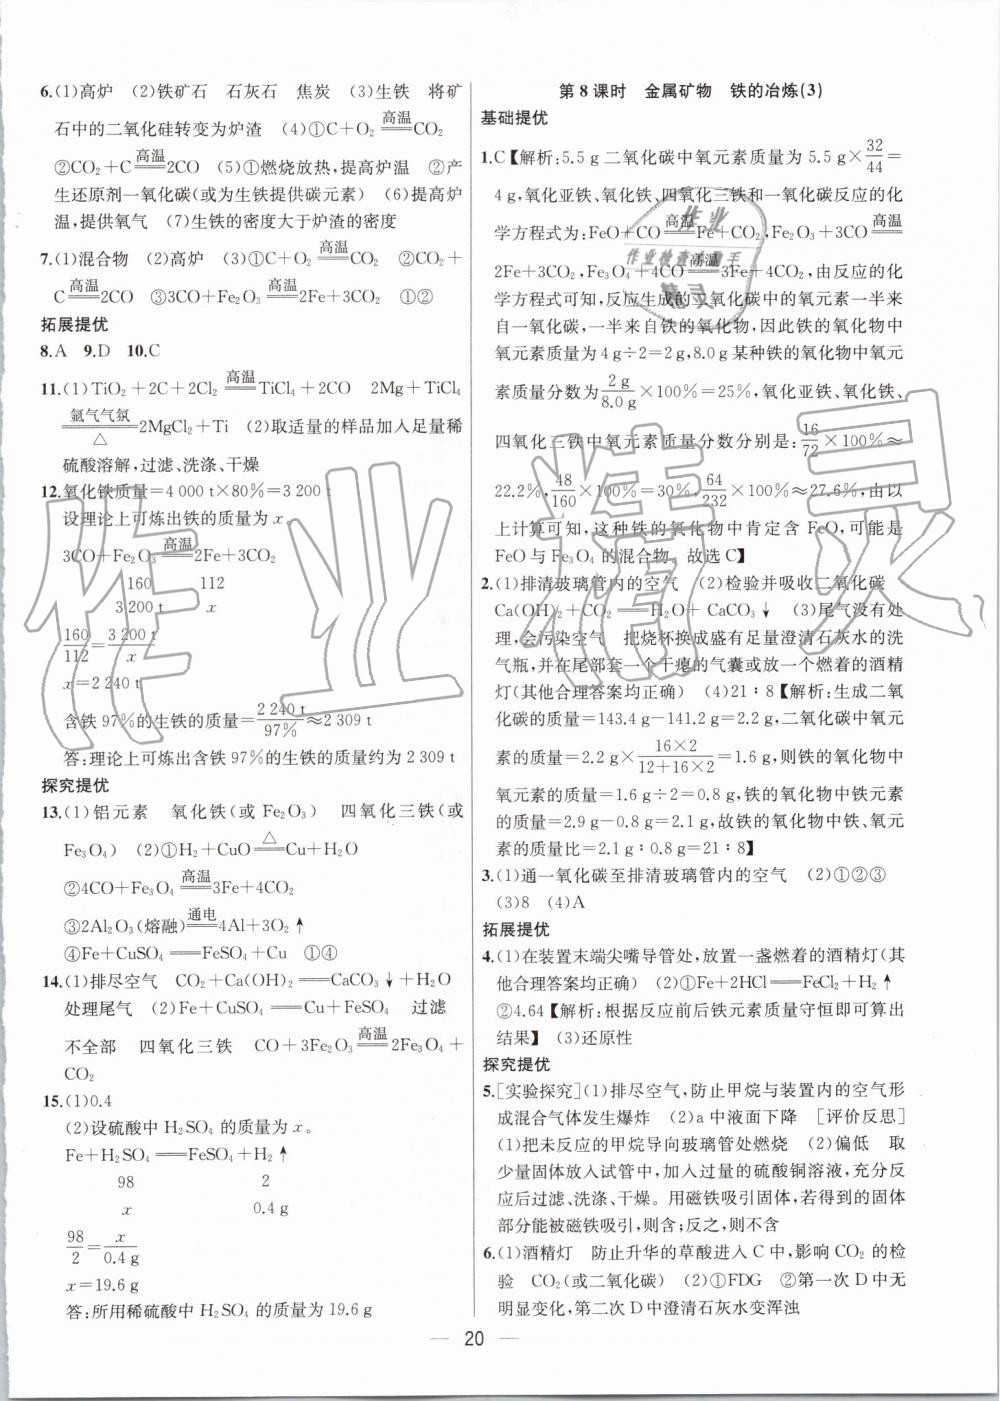 6.(1)高炉　(2)铁矿石　石灰石　焦炭　(3)生铁　将矿
石中的二氧化硅转变为炉渣　(4)①C+O₂ =高温= CO₂
②CO₂+C =高温= 2CO　(5)①燃烧放热,提高炉温　②产
生还原剂一氧化碳(或为生铁提供碳元素)　(6)提高炉
温,提供氧气　(7)生铁的密度大于炉渣的密度
7.(1)混合物　(2)高炉　(3)①C+O₂ =高温= CO₂　②CO₂+
C =高温= 2CO　③3CO+Fe₂O₃ =高温= 2Fe+3CO₂　①②
拓展提优
8.A　9.D　10.C
11.(1)TiO₂+2C+2Cl₂ =高温= TiCl₄+2CO　2Mg+TiCl₄
=氩气气氛/△= 2MgCl₂+Ti　(2)取适量的样品加入足量稀
硫酸溶解,过滤、洗涤、干燥
12.氧化铁质量=4 000 t×80%=3 200 t
设理论上可炼出铁的质量为x。
3CO+Fe₂O₃ =高温= 2Fe+3CO₂
160　112
3 200 t　x
160/112=3 200 t/x
x=2 240 t
含铁 97%的生铁的质量=2 240 t/97%≈2 309 t
答:理论上可炼出含铁 97%的生铁的质量约为 2 309 t
探究提优
13.(1)铝元素　氧化铁(或 Fe₂O₃)　四氧化三铁(或
Fe₃O₄)　(2)①H₂+CuO =△= Cu+H₂O
②4CO+Fe₃O₄ =高温= 3Fe+4CO₂
③2Al₂O₃(熔融) =通电= 4Al+3O₂↑
④Fe+CuSO₄ == FeSO₄+Cu　①④
14.(1)排尽空气　CO₂+Ca(OH)₂ == CaCO₃↓+H₂O
处理尾气　(2)Fe+CuSO₄ == Cu+FeSO₄　过滤
不全部　四氧化三铁　CO+3Fe₂O₃ =高温= 2Fe₃O₄+
CO₂
15.(1)0.4
(2)设硫酸中 H₂SO₄ 的质量为x。
Fe+H₂SO₄ == FeSO₄+H₂↑
98　2
x　0.4 g
98/2=x/0.4 g
x=19.6 g
答:所用稀硫酸中 H₂SO₄ 的质量为 19.6 g
第 8 课时　金属矿物　铁的冶炼(3)
基础提优
1.C【解析:5.5 g 二氧化碳中氧元素质量为 5.5 g×32/44=
4 g,氧化亚铁、氧化铁、四氧化三铁和一氧化碳反应的化
学方程式为:FeO+CO =高温= Fe+CO₂,Fe₂O₃+3CO =高温=
2Fe+3CO₂,Fe₃O₄+4CO =高温= 3Fe+4CO₂,由反应的化
学方程式可知,反应生成的二氧化碳中的氧元素一半来
自一氧化碳,一半来自铁的氧化物,因此铁的氧化物中
氧元素质量为 4 g÷2=2 g,8.0 g 某种铁的氧化物中氧元
素质量分数为2 g/8.0 g×100%=25%,氧化亚铁、氧化铁、
四氧化三铁中氧元素质量分数分别是:16/72×100%≈
22.2%,48/160×100%=30%,64/232×100%≈27.6%,由以
上计算可知,这种铁的氧化物中肯定含 FeO,可能是
FeO 与 Fe₃O₄ 的混合物。故选 C】
2.(1)排清玻璃管内的空气　(2)检验并吸收二氧化碳
Ca(OH)₂+CO₂ == H₂O+CaCO₃↓　(3)尾气没有处
理,会污染空气　把烧杯换成盛有足量澄清石灰水的洗
气瓶,并在尾部套一个干瘪的气囊或放一个燃着的酒精
灯(其他合理答案均正确)　(4)21∶8【解析:生成二氧
化碳的质量=143.4 g-141.2 g=2.2 g,二氧化碳中氧元
素的质量=2.2 g×16×2/12+16×2=1.6 g,则铁的氧化物中
氧元素的质量=1.6 g÷2=0.8 g,铁的氧化物中铁元素
的质量=2.9 g-0.8 g=2.1 g,故铁的氧化物中铁、氧元
素的质量比=2.1 g∶0.8 g=21∶8】
3.(1)通一氧化碳至排清玻璃管内的空气　(2)①②③
(3)8　(4)A
拓展提优
4.(1)在装置末端尖嘴导管处,放置一盏燃着的酒精灯(其
他合理答案均正确)　(2)①Fe+2HCl == FeCl₂+H₂↑
②4.64【解析:根据反应前后铁元素质量守恒即可算出
结果】　(3)还原性
探究提优
5.[实验探究](1)排尽空气,防止甲烷与装置内的空气形
成混合气体发生爆炸　(2)a 中液面下降　[评价反思]
(1)把未反应的甲烷导向玻璃管处燃烧　(2)偏低　取
少量固体放入试管中,加入过量的硫酸铜溶液,充分反
应后过滤、洗涤、干燥。用磁铁吸引固体,若得到的固体
部分能被磁铁吸引,则含;反之,则不含
6.(1)酒精灯　防止升华的草酸进入 C 中,影响 CO₂ 的检
验　CO₂(或二氧化碳)　(2)①FDG　②第一次 D 中无
明显变化,第二次 D 中澄清石灰水变浑浊
20
作业精灵
作业
作业检查小助手
精灵